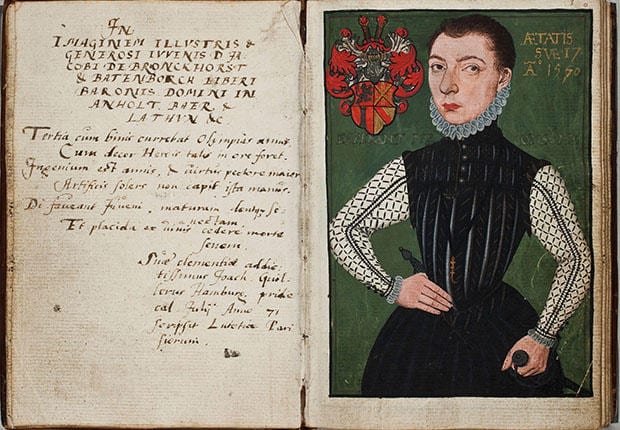 IN
IMAGINEM ILLUSTRIS &
GENEROSI IVVENIS D JA
COBI DE BRONCKHORST
& BATENBORCH LIBERI
BARONIS DOMINI IN
ANHOLT, BAER, &
LATHVN &c
Tertia cum binis currebat Olympias annis,
Cum decor Herois talis in ore foret.
Ingenium est annis, & virtus pectore maior
Artificis solers non capit ista manus.
Di faveant Iuveni, maturam dentque se-
nectam
Et placida et vivis cedere morte
senem.
Suae clementiae addic-
tissimus Joach.
Hamburg. pridie
cal Julij Anno 71
scripsit Lutetiae Pari
siorum.
ÆTATIS
SVE 17
Aº 1570